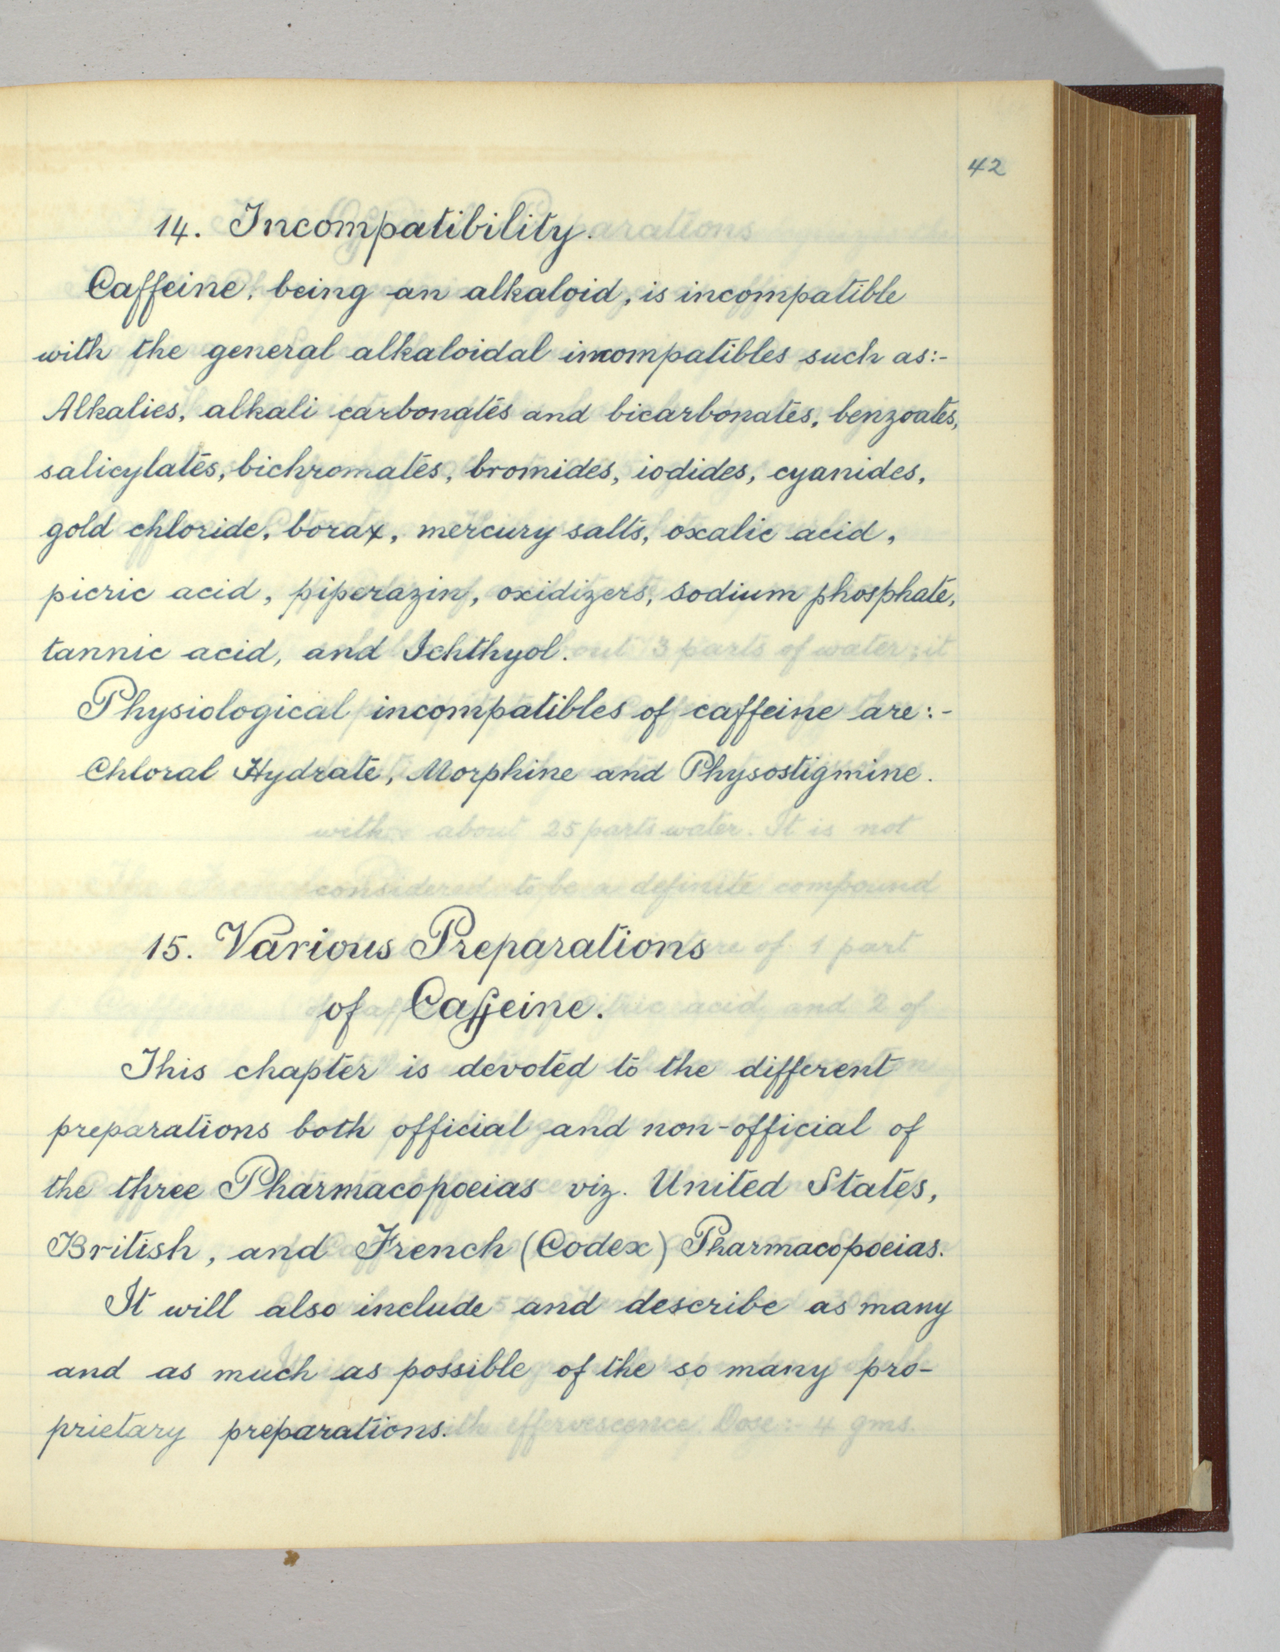 42
14. Incompatibility.
Caffeine, being an alkaloid, is incompatible
with the general alkaloidal incompatibles such as:-
Alkalies, alkali carbonates and bicarbonates, benzoates,
salicylates, bichromates, bromides, iodides, cyanides,
gold chloride, borax, mercury salts, oxalic acid,
picric acid, piperazin, oxidizers, sodium phosphate,
tannic acid, and Ichthyol.
Physiological incompatibles of caffeine are:-
Chloral Hydrate, Morphine and Physostigmine.
15. Various Preparations
of Caffeine.
This chapter is devoted to the different
preparations both official and non-official of
the three Pharmacopoeias viz. United States,
British, and French (Codex) Pharmacopoeias.
It will also include and describe as many
and as much as possible of the so many pro-
prietary preparations.